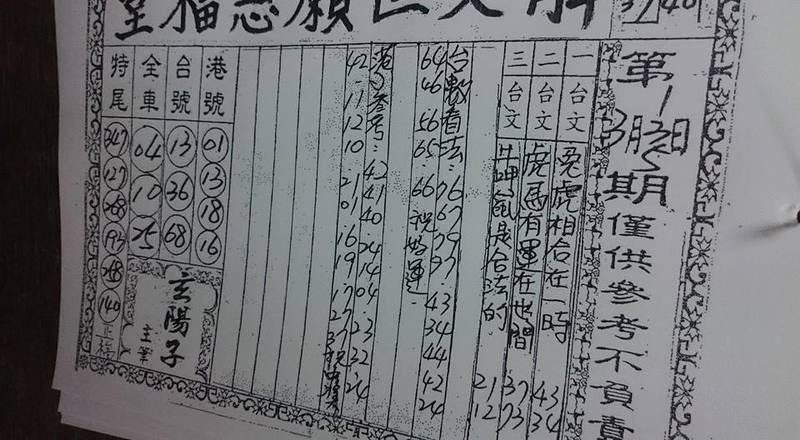 願慈福堂
第
期僅供參考不負責
一台文 兔虎相合在一時 43 34
二台文 虎馬有運在世間 37 73
三台文 鼠是合法的 21 12
台數看法:76 67 79 97 43 34 44 42 24
64 46 56 65 66 祝好運
港參考:42 41 40 24 14 04 23 32 24
42 11 12 10 21 01 16 19 17 27 37
港號 01 13 18 16
台號 13 36 68
全車 04 10 25
特尾 347 127 268 193 268 140
玄陽子
主筆